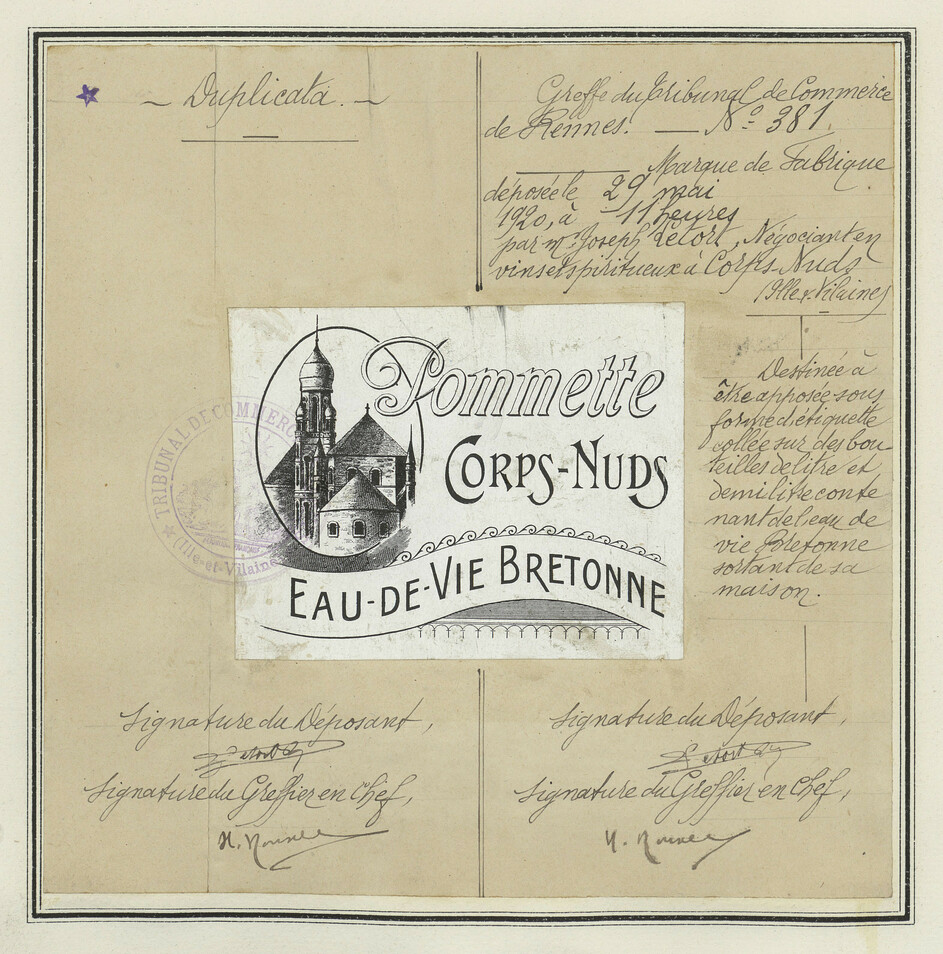 ~ Duplicata. ~
Greffe du Tribunal de Commerce
de Rennes. — No 381.
Marque de Fabrique
déposée le 29 mai
1920, à 11 heures
par Mr Joseph Letort, Négociant en
vins et spiritueux à Corps-Nuds
(Ille & Vilaine)
Pommette
CORPS-NUDS
EAU-DE-VIE BRETONNE
TRIBUNAL DE COMMERC
(Ille-et-Vilaine
Destinée à
être apposée sous
forme d'étiquette
collée sur des bou-
teilles de litre et
demi litre conte
nant de l'eau de
vie Bretonne
sortant de sa
maison.
Signature du Déposant,
Letort
Signature du Greffier en Chef,
Signature du Déposant,
Letort
Signature du Greffier en Chef,